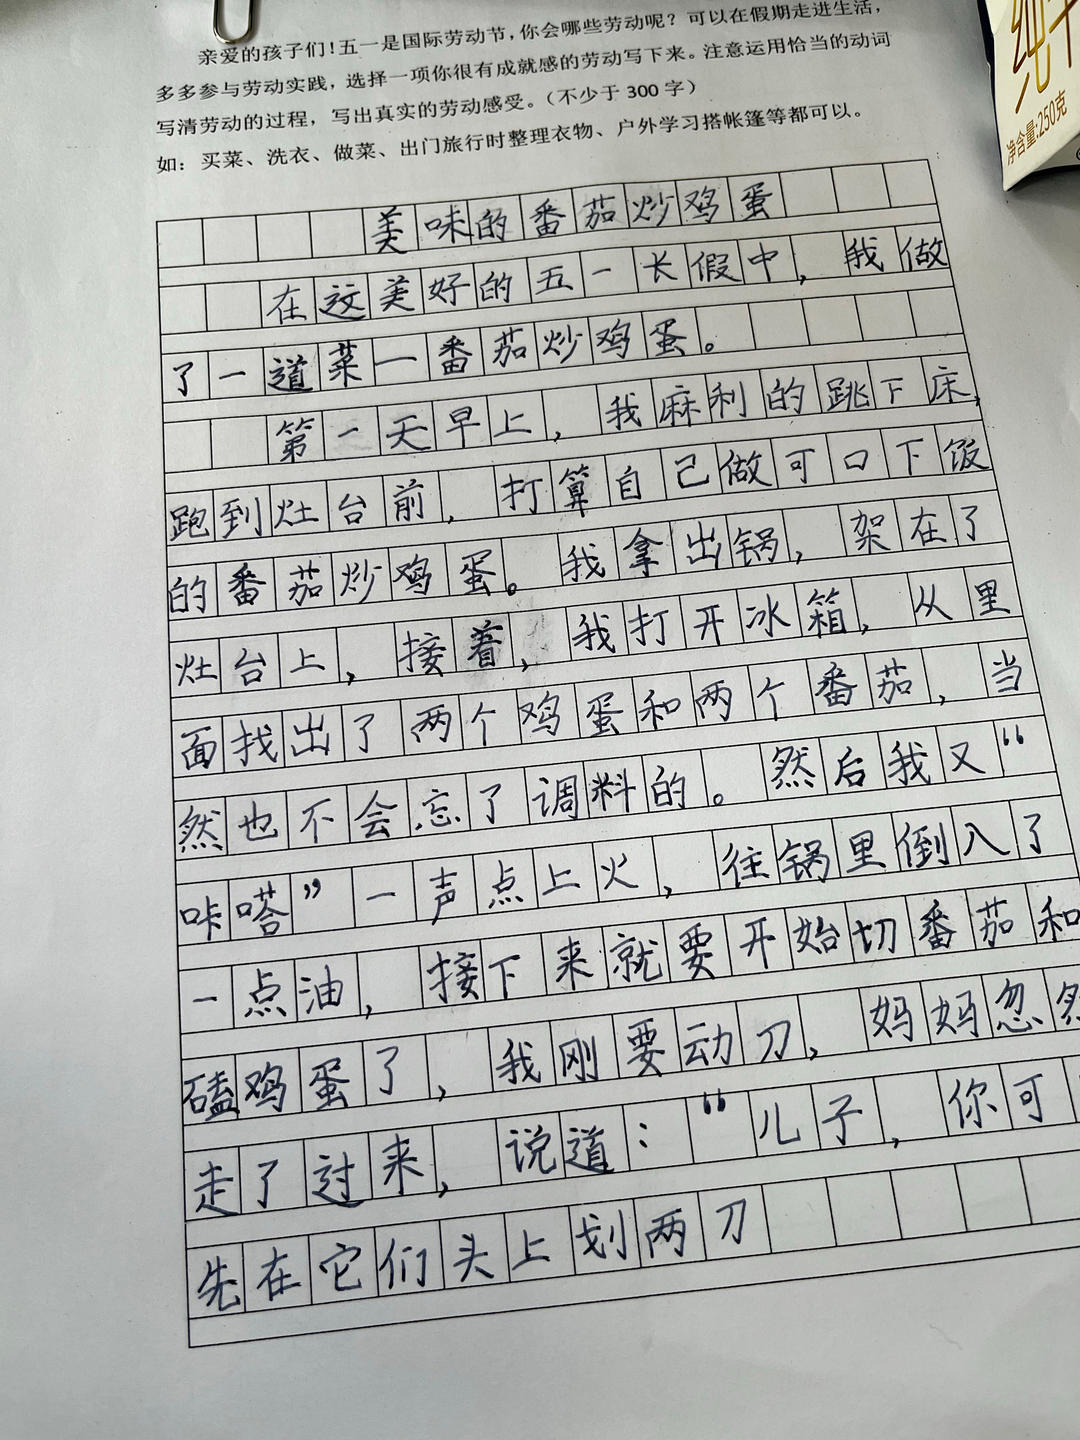 亲爱的孩子们！五一是国际劳动节，你会哪些劳动呢？可以在假期走进生活，
多多参与劳动实践，选择一项你很有成就感的劳动写下来。注意运用恰当的动词
写清劳动的过程，写出真实的劳动感受。（不少于 300 字）
如：买菜、洗衣、做菜、出门旅行时整理衣物、户外学习搭帐篷等都可以。
纯牛
净含量:250克
美味的番茄炒鸡蛋
在这美好的五一长假中，我做
了一道菜一番茄炒鸡蛋。
第一天早上，我麻利的跳下床，
跑到灶台前，打算自己做可口下饭
的番茄炒鸡蛋。我拿出锅，架在了
灶台上，接着，我打开冰箱，从里
面找出了两个鸡蛋和两个番茄，当
然也不会忘了调料的。然后我又“
咔嗒”一声点上火，往锅里倒入了
一点油，接下来就要开始切番茄和
磕鸡蛋了，我刚要动刀，妈妈忽然
走了过来，说道：“儿子，你可
先在它们头上划两刀